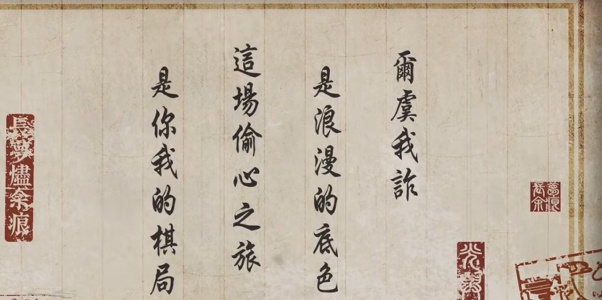 爾虞我詐
是浪漫的底色
這場偷心之旅
是你我的棋局